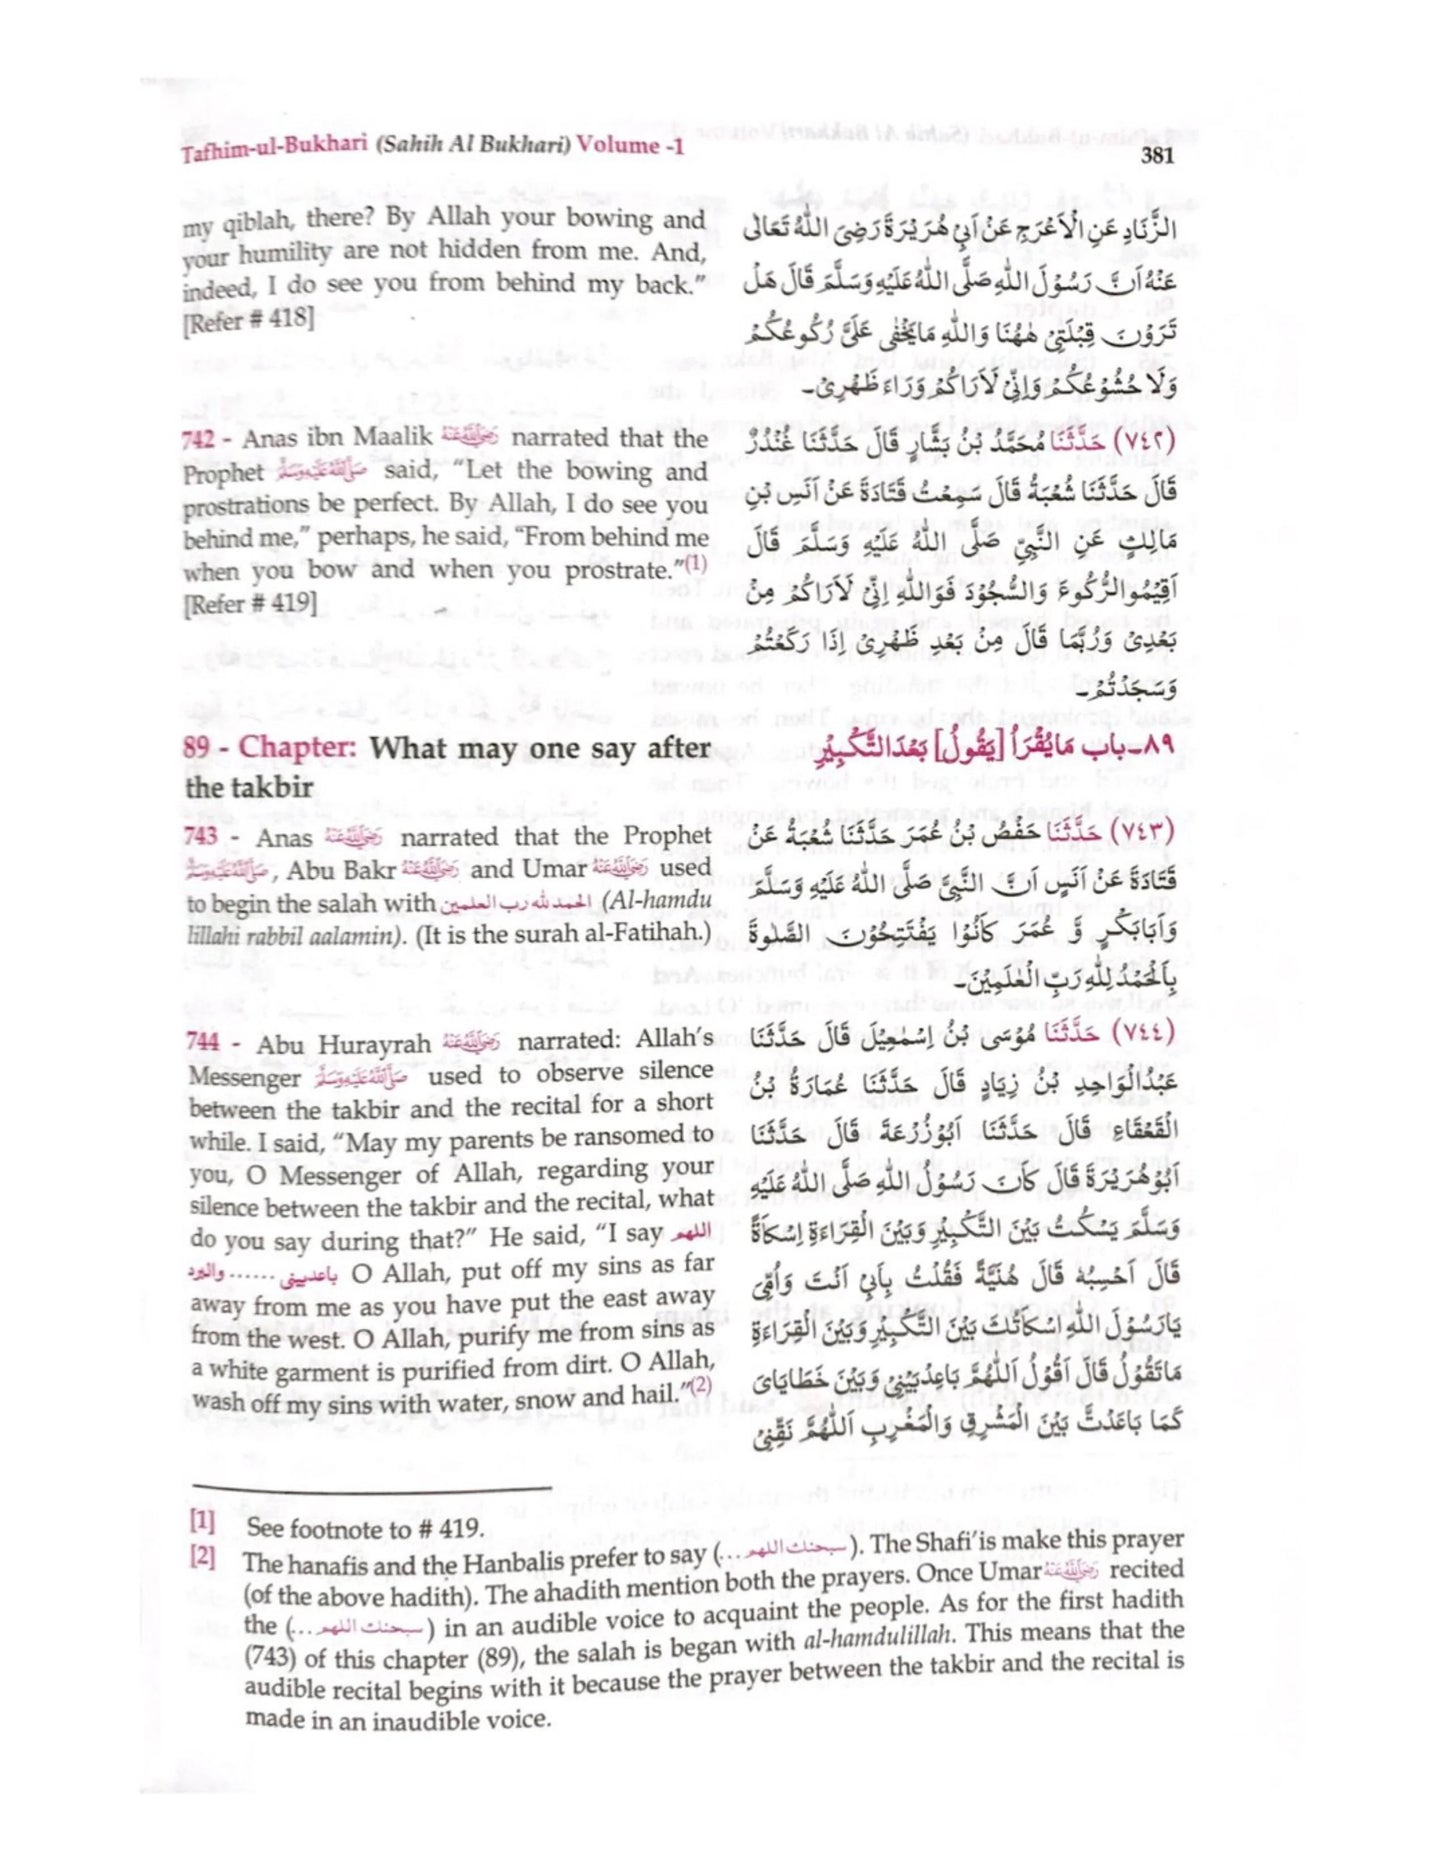 Tafhim-ul-Bukhari (Sahih Al Bukhari) Volume -1
381
my qiblah, there? By Allah your bowing and
your humility are not hidden from me. And,
indeed, I do see you from behind my back."
[Refer # 418]
الزِّنَادِ عَنِ الْاَعْرَجِ عَنْ اَبِیْ هُرَيْرَةَ رَضِیَ اللّٰهُ تَعَالٰی
عَنْهُ اَنَّ رَسُوْلَ اللّٰهِ صَلَّی اللّٰهُ عَلَيْهِ وَسَلَّمَ قَالَ هَلْ
تَرَوْنَ قِبْلَتِیْ هٰهُنَا وَاللّٰهِ مَا يَخْفٰی عَلَیَّ رُكُوعُكُمْ
وَلَا خُشُوْعُكُمْ وَاِنِّیْ لَاَرَاكُمْ وَرَاءَ ظَهْرِیْ۔
742 - Anas ibn Maalik رضی اللہ عنہ narrated that the
Prophet صلی اللہ علیہ وسلم said, "Let the bowing and
prostrations be perfect. By Allah, I do see you
behind me," perhaps, he said, "From behind me
when you bow and when you prostrate."(1)
[Refer # 419]
(٧٤٢) حَدَّثَنَا مُحَمَّدُ بْنُ بَشَّارٍ قَالَ حَدَّثَنَا غُنْدُرٌ
قَالَ حَدَّثَنَا شُعْبَةُ قَالَ سَمِعْتُ قَتَادَةَ عَنْ اَنَسِ بْنِ
مَالِكٍ عَنِ النَّبِیِّ صَلَّی اللّٰهُ عَلَيْهِ وَسَلَّمَ قَالَ
اَقِيْمُوا الرُّكُوعَ وَالسُّجُوْدَ فَوَاللّٰهِ اِنِّیْ لَاَرَاكُمْ مِنْ
بَعْدِیْ وَرُبَّمَا قَالَ مِنْ بَعْدِ ظَهْرِیْ اِذَا رَكَعْتُمْ
وَسَجَدْتُمْ۔
89 - Chapter: What may one say after
the takbir
٨٩۔باب مَا يُقْرَأُ [يَقُولُ] بَعْدَ التَّكْبِيْرِ
743 - Anas رضی اللہ عنہ narrated that the Prophet
صلی اللہ علیہ وسلم, Abu Bakr رضی اللہ عنہ and Umar رضی اللہ عنہ used
to begin the salah with الحمد لله رب العلمين (Al-hamdu
lillahi rabbil aalamin). (It is the surah al-Fatihah.)
(٧٤٣) حَدَّثَنَا حَفْصُ بْنُ عُمَرَ حَدَّثَنَا شُعْبَةُ عَنْ
قَتَادَةَ عَنْ اَنَسٍ اَنَّ النَّبِیَّ صَلَّی اللّٰهُ عَلَيْهِ وَسَلَّمَ
وَاَبَابَكْرٍ وَّ عُمَرَ كَانُوْا يَفْتَتِحُوْنَ الصَّلٰوةَ
بِاَلْحَمْدُ لِلّٰهِ رَبِّ الْعٰلَمِيْنَ۔
744 - Abu Hurayrah رضی اللہ عنہ narrated: Allah's
Messenger صلی اللہ علیہ وسلم used to observe silence
between the takbir and the recital for a short
while. I said, "May my parents be ransomed to
you, O Messenger of Allah, regarding your
silence between the takbir and the recital, what
do you say during that?" He said, "I say اللهم
باعدبينی ...... والبرد O Allah, put off my sins as far
away from me as you have put the east away
from the west. O Allah, purify me from sins as
a white garment is purified from dirt. O Allah,
wash off my sins with water, snow and hail."(2)
(٧٤٤) حَدَّثَنَا مُوْسَی بْنُ اِسْمٰعِيْلَ قَالَ حَدَّثَنَا
عَبْدُالْوَاحِدِ بْنُ زِيَادٍ قَالَ حَدَّثَنَا عُمَارَةُ بْنُ
الْقَعْقَاءِ قَالَ حَدَّثَنَا اَبُوْزُرْعَةَ قَالَ حَدَّثَنَا
اَبُوْ هُرَيْرَةَ قَالَ كَانَ رَسُوْلُ اللّٰهِ صَلَّی اللّٰهُ عَلَيْهِ
وَسَلَّمَ يَسْكُتُ بَيْنَ التَّكْبِيْرِ وَبَيْنَ الْقِرَاءَةِ اِسْكَاتَةً
قَالَ اَحْسِبُهٗ قَالَ هُنَيَّةً فَقُلْتُ بِاَبِیْ اَنْتَ وَاُمِّیْ
يَارَسُوْلَ اللّٰهِ اِسْكَاتُكَ بَيْنَ التَّكْبِيْرِ وَبَيْنَ الْقِرَاءَةِ
مَا تَقُوْلُ قَالَ اَقُوْلُ اَللّٰهُمَّ بَاعِدْ بَيْنِیْ وَبَيْنَ خَطَايَایَ
كَمَا بَاعَدْتَّ بَيْنَ الْمَشْرِقِ وَالْمَغْرِبِ اَللّٰهُمَّ نَقِّنِیْ
[1] See footnote to # 419.
[2] The hanafis and the Hanbalis prefer to say (سبحنك اللهم...). The Shafi'is make this prayer
(of the above hadith). The ahadith mention both the prayers. Once Umar رضی اللہ عنہ recited
the (سبحنك اللهم...) in an audible voice to acquaint the people. As for the first hadith
(743) of this chapter (89), the salah is began with al-hamdulillah. This means that the
audible recital begins with it because the prayer between the takbir and the recital is
made in an inaudible voice.